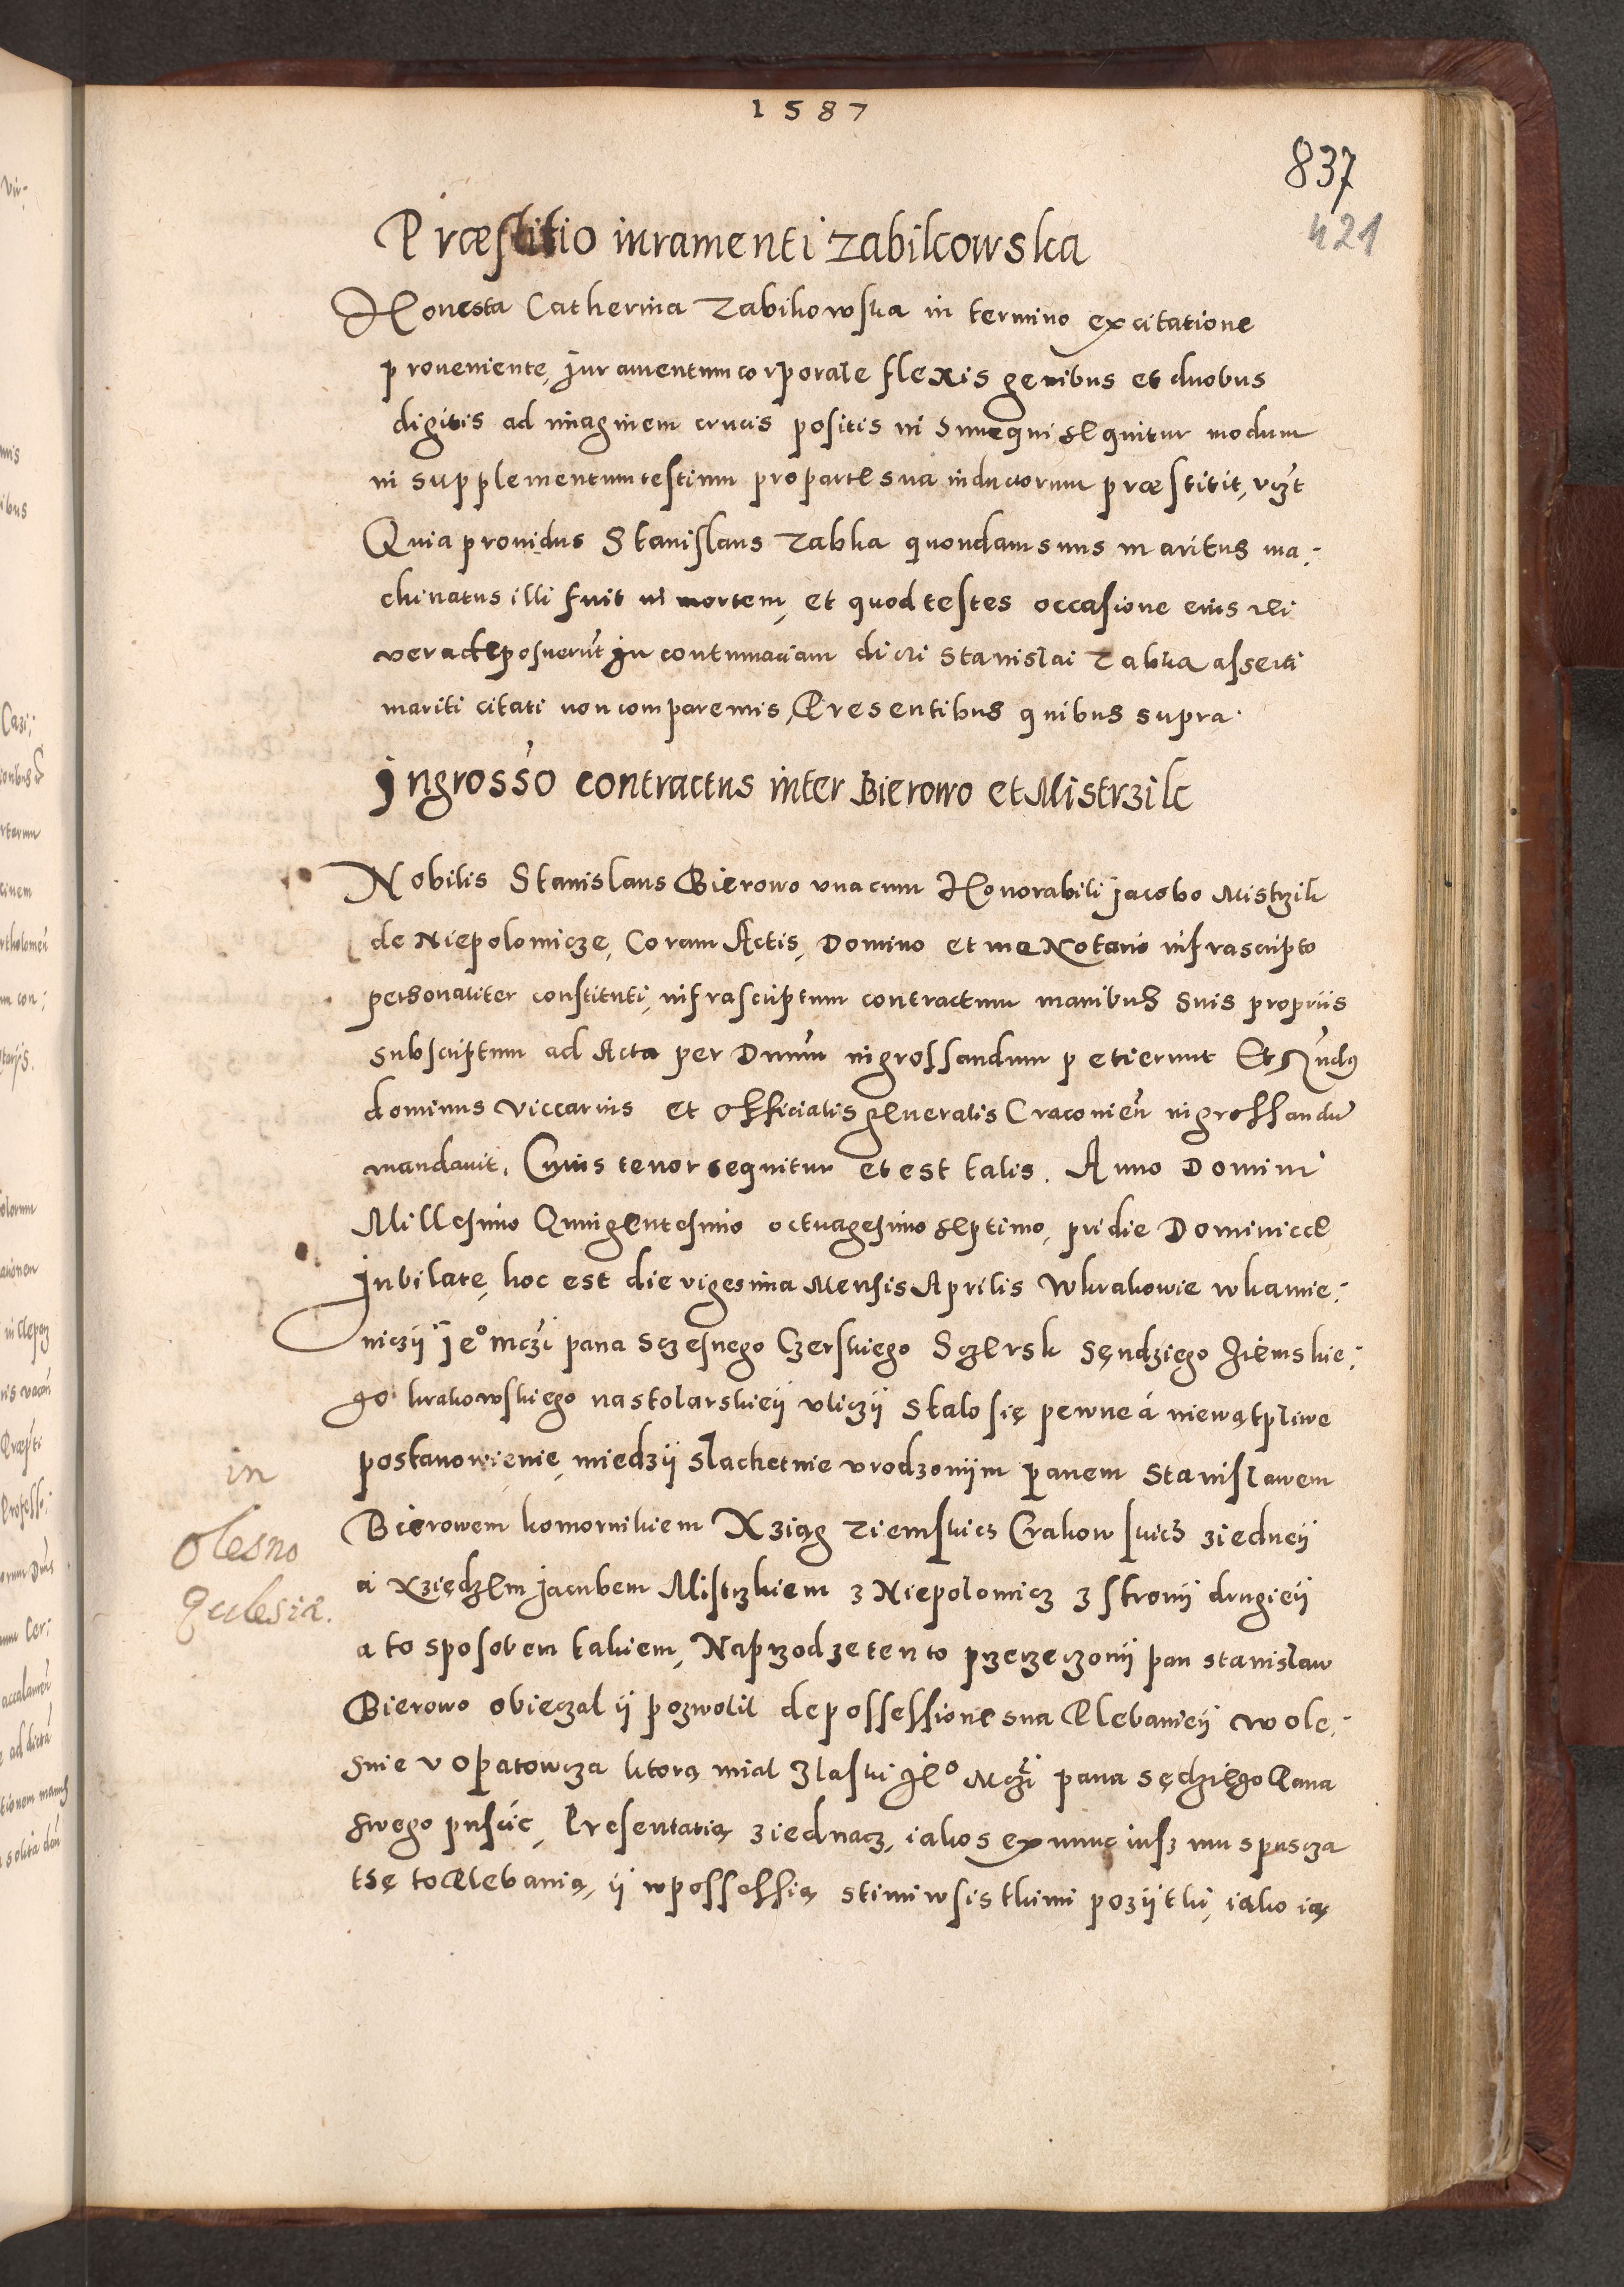 1587
837
421
Præstitio iuramenti Zabikowska
Honesta Catherina Zabikowska in termino ex citatione
proueniente, Juramentum corporale flexis genibus et duobus
digitis ad imaginem crucis positis in Sunc qui sequitur modum
in supplementum testium pro parte sua inductorum præstitit, vizt
Quia prouidus Stanislaus Zabka quondam suus maritus ma:
chinatus illi fuit in mortem, et quod testes occasione eius rei
vera deposuerūt In contumaciam dicti Stanislai Zabka asserti
mariti citati non comparentis, Presentibus quibus supra.
Ingrosso contractus inter Bierowo et Mistrzik
Nobilis Stanislaus Bierowo vna cum Honorabili Jacobo Mistrzik
de Niepolomicze, Coram Actis, Domino et me Notario infrascripto
personaliter constituti, infrascriptum contractum manibus suis propriis
subscriptum ad Acta per Dnum ingrossandum petierunt Et Rndus
dominus Viccarius et Officialis generalis Cracovien̄ ingrossandū
mandauit. Cuius tenor sequitur et est talis. Anno Domini
Millesimo Quingentesimo octuagesimo septimo, pridie Dominicæ
Jubilate, hoc est die vigesima Mensis Aprilis Wkrakowie wkamie:
niczÿ Je° mczi pana Sczesnego Czerskiego Sczersk Sędziego Ziemskie:
go krakowskiego na stolarskieÿ vliczÿ Stalo się pewne á niewątpliwe
postanowienie, miedzÿ slachetnie vrodzonÿm panem Stanislawem
Bierowem komornikiem Xziąg Ziemskics Crakowskich ziedneÿ
a Xzięedzem Jacubem Mistrzkiem z Niepolomicz z stronÿ drugieÿ
a to sposobem takiem, Naprzod ze tento przerzeczonÿ pan Stanislaw
Bierowo obieczal ÿ pozwolil de possessione sua Plebanieÿ w ole:
snie v opatowcza ktorą mial Zlaski Je° Mczi pana Sędziego Pana
swego puscic, Presentatią ziednacz, iakos ex nunc iusz mu spuscza
tsę to Plebanią, ÿ w possessią stimi wsistkimi pozÿtki, iako ią
in
Olesno
Ecclesia.